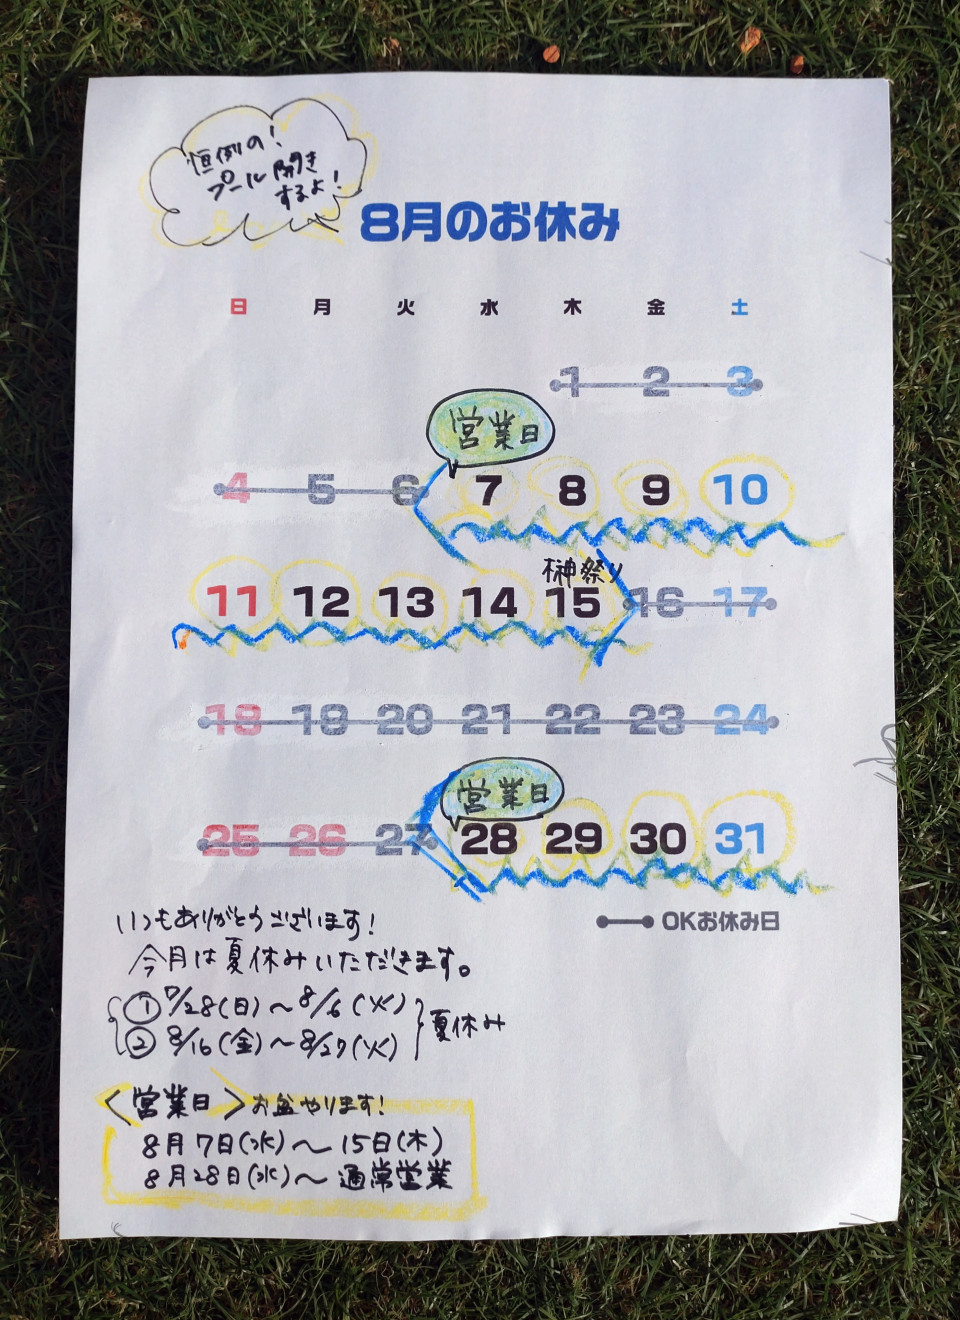 恒例の!
プール開き
するよ!
8月のお休み
日 月 火 水 木 金 土
1 2 3
営業日
4 5 6 7 8 9 10
榊祭り
11 12 13 14 15 16 17
18 19 20 21 22 23 24
営業日
25 26 27 28 29 30 31
OKお休み日
いつもありがとうございます!
今月は夏休みいただきます。
① 7/28(日)〜8/6(火)
② 8/16(金)〜8/27(火)
夏休み
<営業日>お盆やります!
8月7日(水)〜15日(木)
8月28日(水)〜通常営業